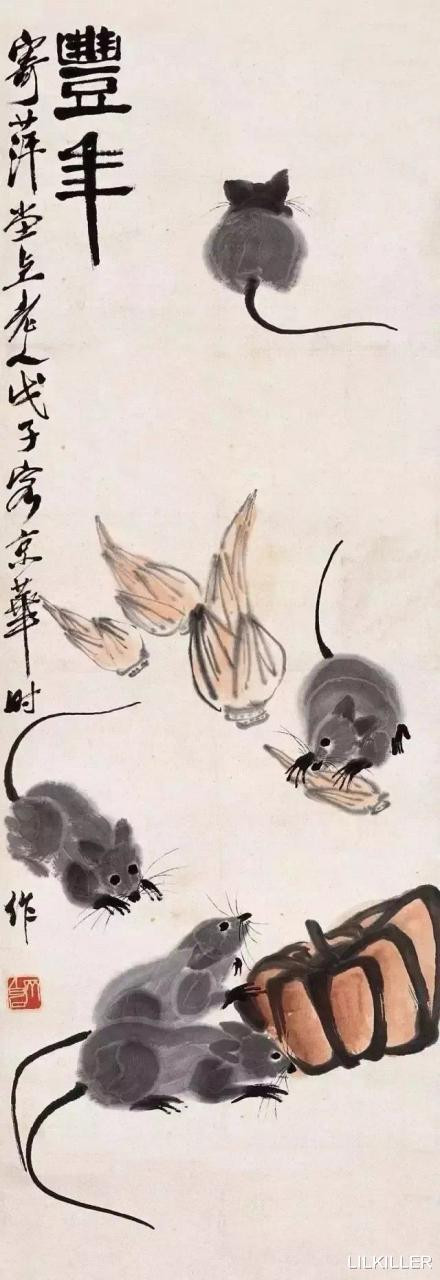 豐年
寄萍堂上老人戊子客京華時作
LILKILLER